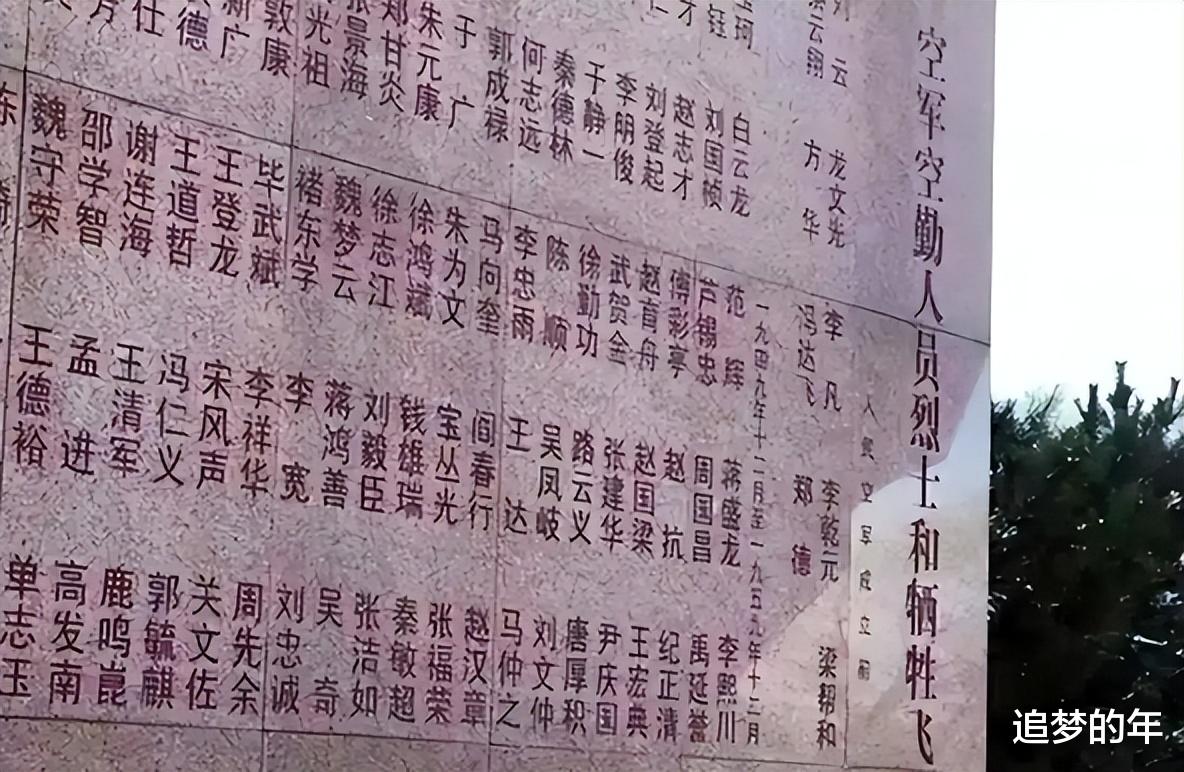 空军空勤人员烈士和牺牲飞
人民空军成立前
刘云 龙文光 李凡 李乾元 梁邦和
云翔 方华 冯达飞 郑德
一九四九年十一月至一九五九年十二月
珂 白云龙 范辉 蒋盛龙 李熙川
钰 刘国桢 芦锡忠 周国昌 禹延誉
才 赵志才 傅彩亭 赵抗 纪正清
仁 刘登起 赵首舟 赵国梁 王宏典
李明俊 武贺金 张建华 尹庆国
于静一 徐勤功 路云义 唐厚积
秦德林 陈顺 吴凤岐 刘文仲
何志远 李忠雨 王达 马仲之
郭成禄 马向奎 阎春行 赵汉章
于广 朱为文 宝丛光 张福荣
朱元康 徐鸿斌 钱雄瑞 秦敏超
郑甘炎 徐志江 刘毅臣 张洁如
张景海 魏梦云 蒋鸿善 吴奇
光祖 褚东学 李宽 刘忠诚
敦康 毕武斌 李祥华 周先余
新广 王登龙 宋风声 关文佐
德 王道哲 冯仁义 郭毓麒
仕 谢连海 王清军 鹿鸣崑
邵学智 孟进 高发南
魏守荣 王德裕 单志玉
追梦的年